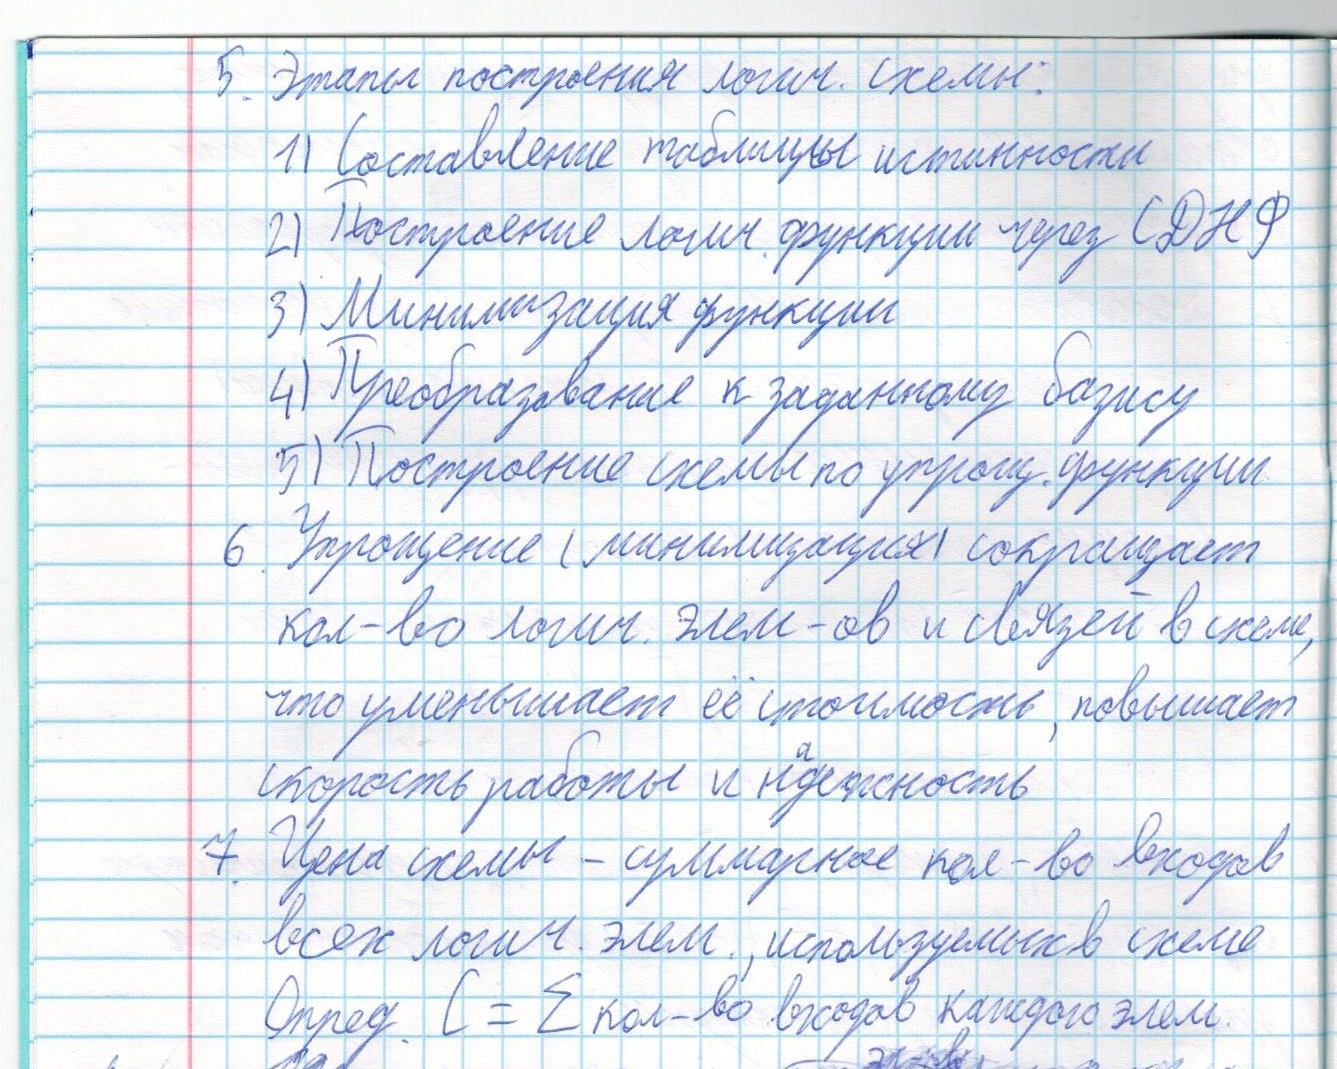 5. Этапы построения логич. схемы:
1) Составление таблицы истинности
2) Построение логич. функции через СДНФ
3) Минимизация функции
4) Преобразование к заданному базису
5) Построение схемы по упрощ. функции
6. Упрощение (минимизация) сокращает
кол-во логич. элем-ов и связей в схеме,
что уменьшает её стоимость, повышает
скорость работы и надежность
7. Цена схемы – суммарное кол-во входов
всех логич. элем., используемых в схеме
Опред. C = Σ кол-во входов каждого элем.